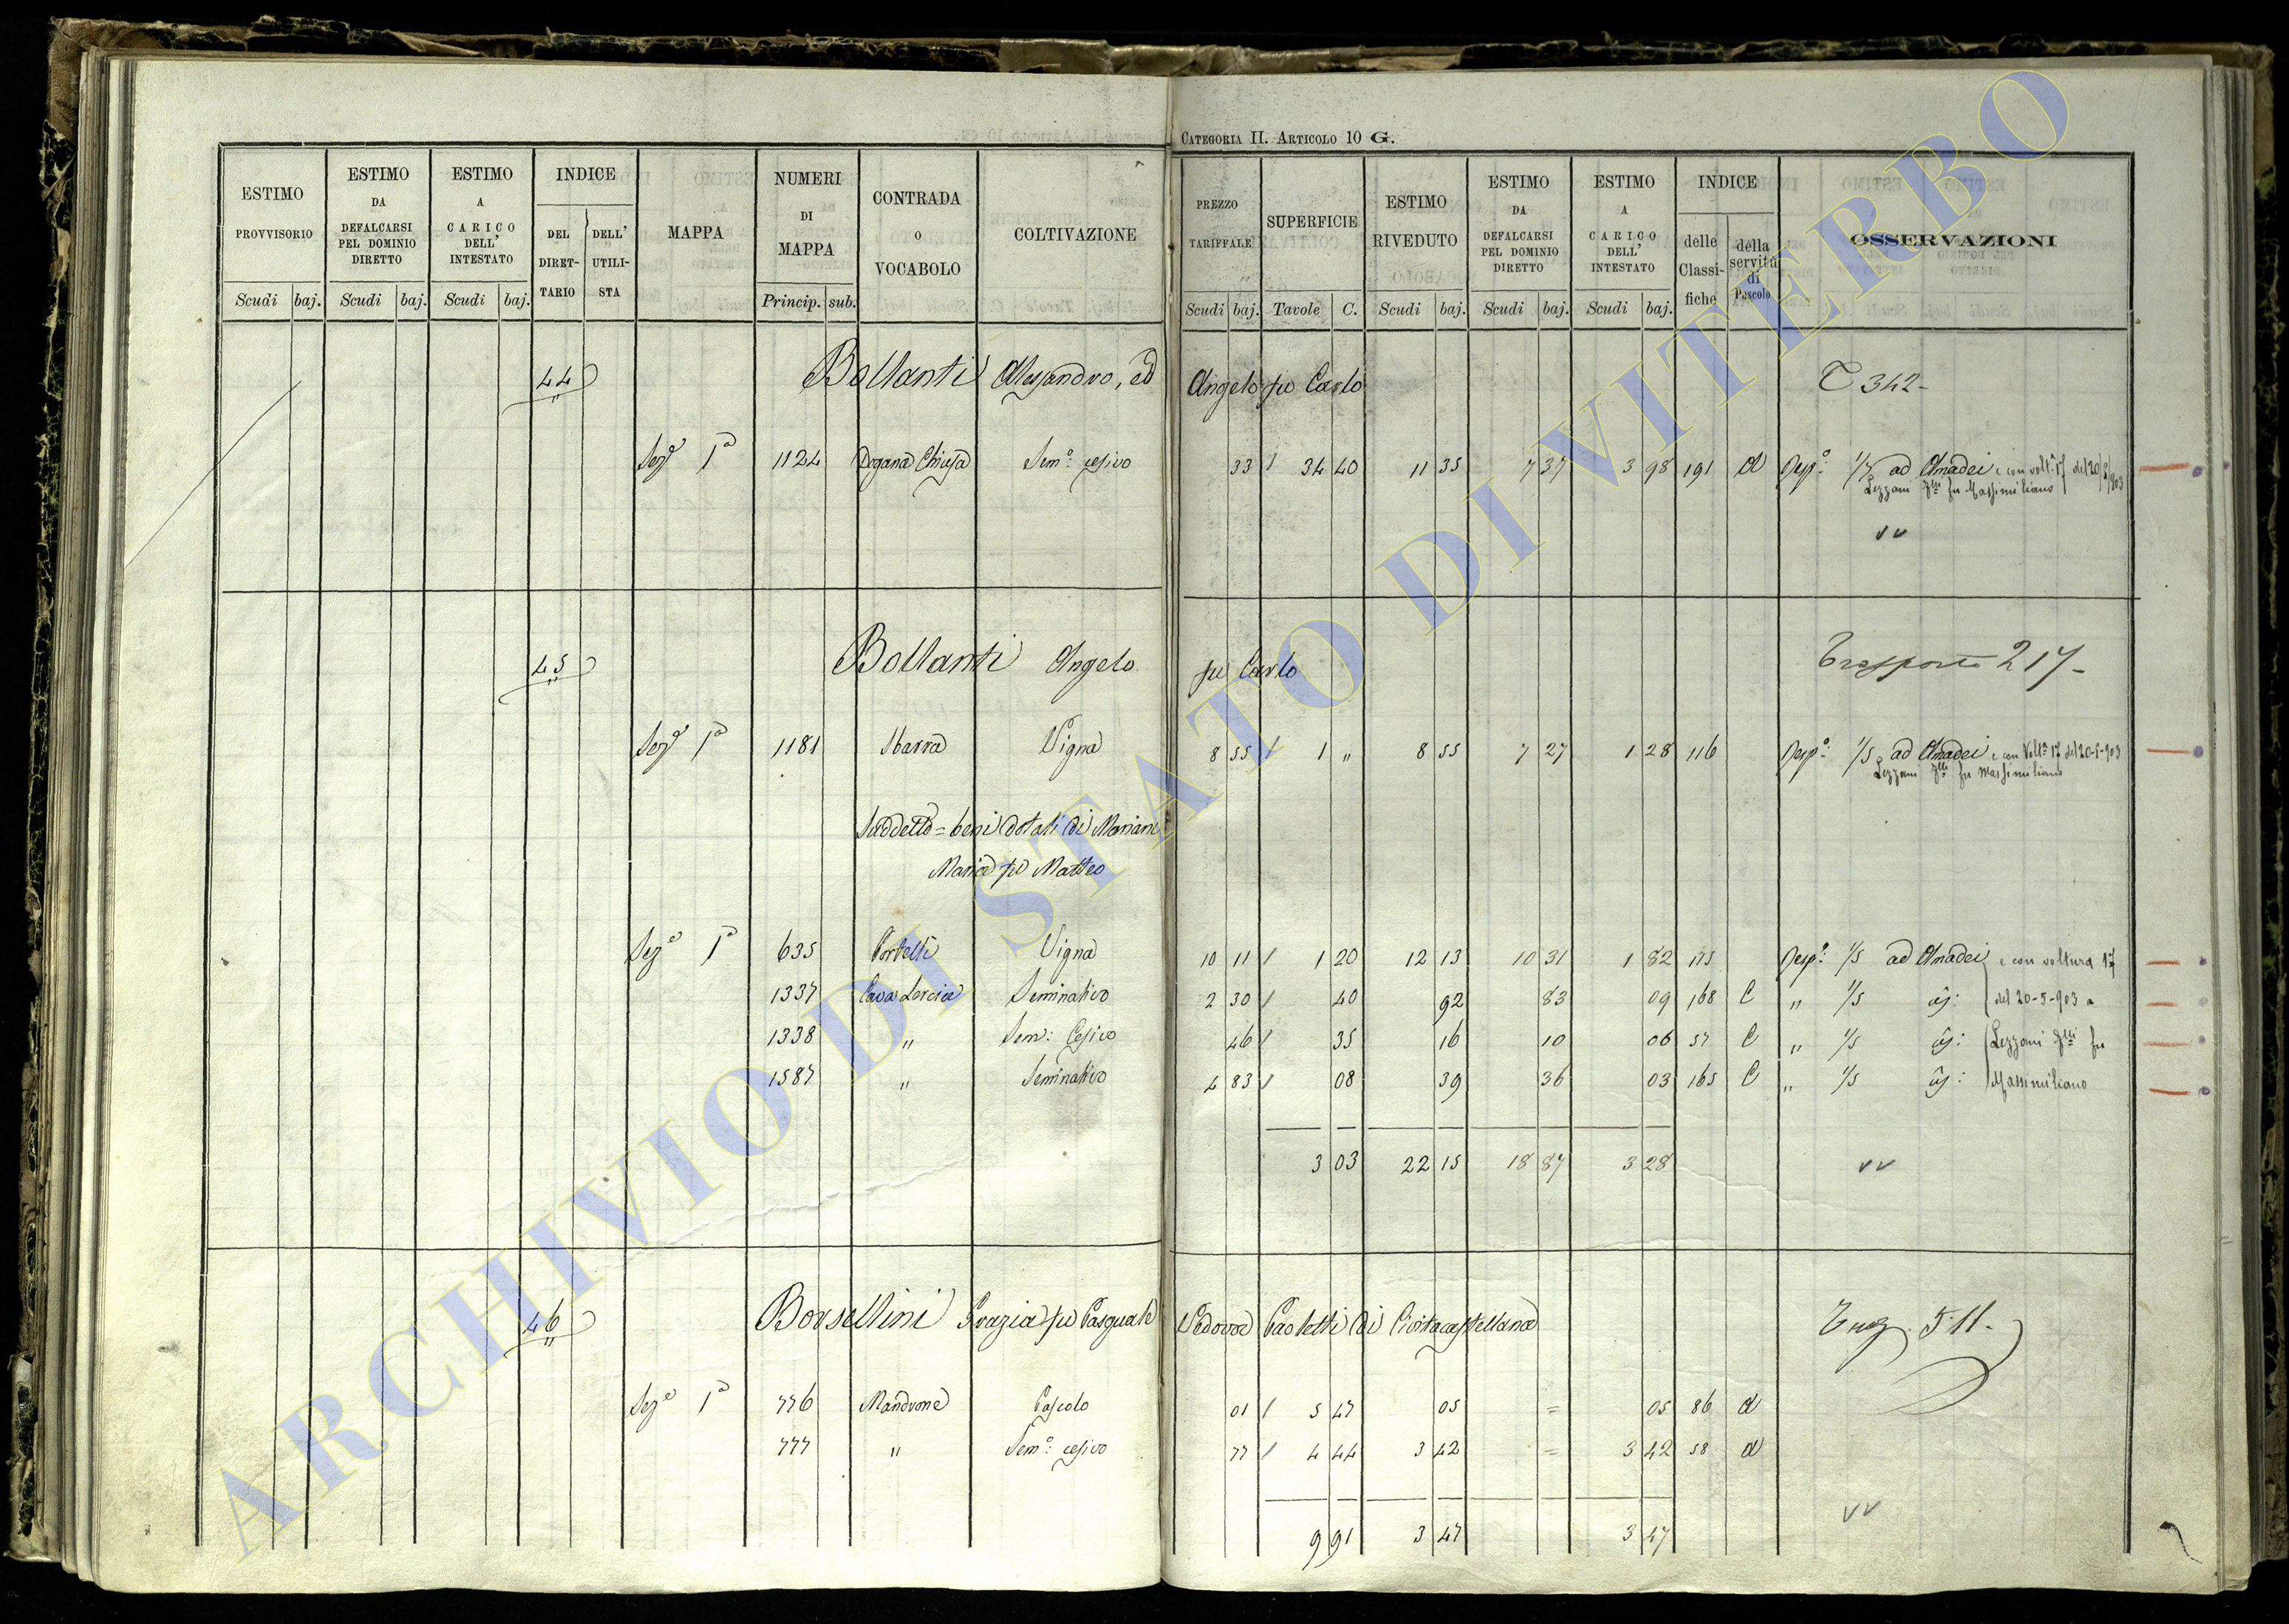 CATEGORIA II. ARTICOLO 10 G.
ESTIMO PROVVISORIO Scudi baj.
ESTIMO DA DEFALCARSI PEL DOMINIO DIRETTO Scudi baj.
ESTIMO A CARICO DELL' INTESTATO Scudi baj.
INDICE DEL DIRETTARIO DELL' UTILISTA
MAPPA
NUMERI DI MAPPA Princip. sub.
CONTRADA O VOCABOLO
COLTIVAZIONE
PREZZO TARIFFALE Scudi baj.
SUPERFICIE Tavole C.
ESTIMO RIVEDUTO Scudi baj.
ESTIMO DA DEFALCARSI PEL DOMINIO DIRETTO Scudi baj.
ESTIMO A CARICO DELL' INTESTATO Scudi baj.
INDICE delle Classifiche della servitù di Pascolo
OSSERVAZIONI
44 Bollanti Alessandro, ed Angelo fu Carlo T 342-
Sez.e 1a 1124 Dogana Chiusa Sem.o cesivo 33 / 34 40 11 35 7 37 3 98 191 d Resp.o 1/5 ad Amadei e con volt.a 17 del 20/5/903
Lezzani F.lli fu Massimiliano
vv
45 Bollanti Angelo fu Carlo Trasporto 217-
Sez.e 1a 1181 Sbarra Vigna 8 55 / 1 " 8 55 7 27 1 28 116 Resp.o 1/5 ad Amadei e con Volt.a 17 del 20-5-903
Lezzani F.lli fu Massimiliano
Suddetto = beni dotali di Mariani
Maria fu Matteo
Sez.e 1a 635 Portelli Vigna 10 11 / 1 20 12 13 10 31 1 82 115 Resp.o 1/5 ad Amadei e con voltura 17
1337 Cava Lercia Seminativo 2 30 / 40 92 83 09 168 C " 1/5 del 20-5-903 a
1338 " Sem: Cesivo 46 / 35 16 10 06 57 C " 1/5 Lezzani F.lli fu
1587 " Seminativo 4 83 / 08 39 36 03 165 C " 1/5 Massimiliano
3 03 22 15 18 87 3 28 vv
46 Borsellini Grazia fu Pasquale Vedova Paoletti di Civitacastellana 511-
Sez.e 1a 776 Mandrone Pascolo 01 / 5 47 05 = 05 86 d
777 " Sem.o cesivo 77 / 4 44 3 42 = 3 42 58 d
vv
9 91 3 47 3 47
ARCHIVIO DI STATO DI VITERBO